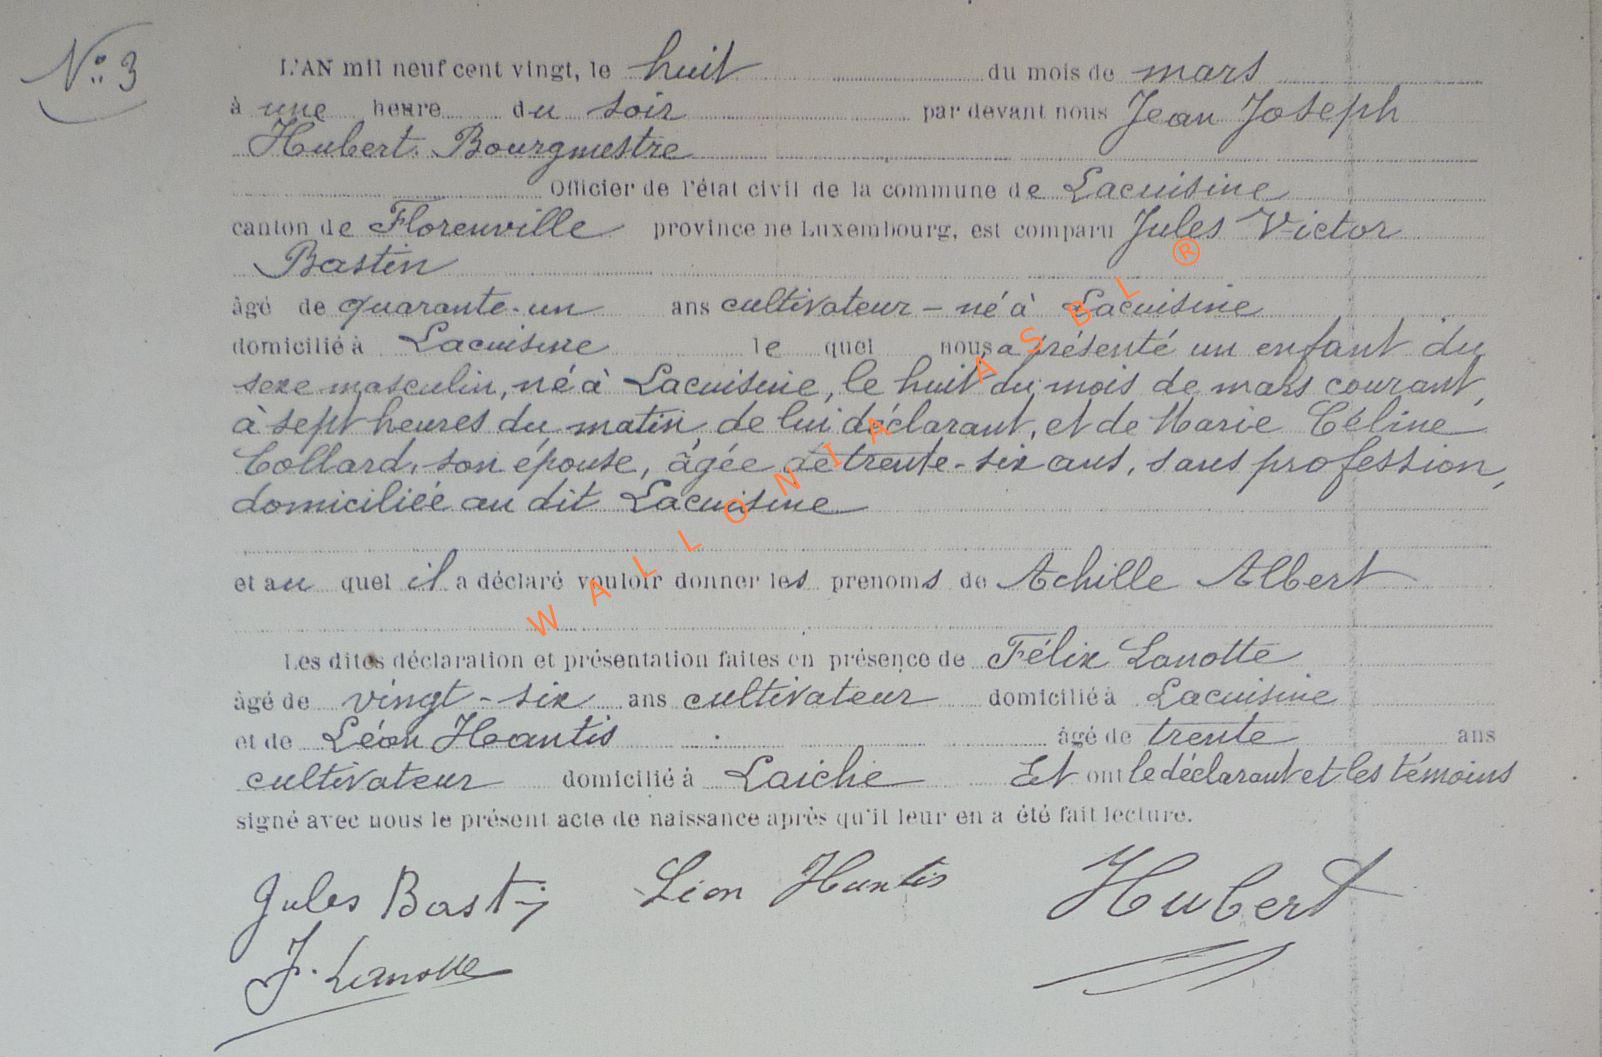 N° 3
L'AN mil neuf cent vingt, le huit du mois de mars
à une heure du soir par devant nous Jean Joseph
Hubert. Bourgmestre
Officier de l'état civil de la commune de Lacuisine
canton de Florenville province de Luxembourg, est comparu Jules Victor
Bastin
âgé de quarante-un ans cultivateur - né à Lacuisine
domicilié à Lacuisine le quel nous a présenté un enfant du
sexe masculin, né à Lacuisine, le huit du mois de mars courant,
à sept heures du matin, de lui déclarant, et de Marie Céline
Collard, son épouse, âgée de trente-six ans, sans profession,
domiciliée au dit Lacuisine
et au quel il a déclaré vouloir donner les prenoms de Achille Albert
Les dites déclaration et présentation faites en présence de Félix Lanotte
âgé de vingt-six ans cultivateur domicilié à Lacuisine
et de Léon Hantis âgé de trente ans
cultivateur domicilié à Laiche Et ont le déclarant et les témoins
signé avec nous le présent acte de naissance après qu'il leur en a été fait lecture.
Jules Bastin Léon Hantis Hubert
F. Lanotte
WALLONIA ASBL ®